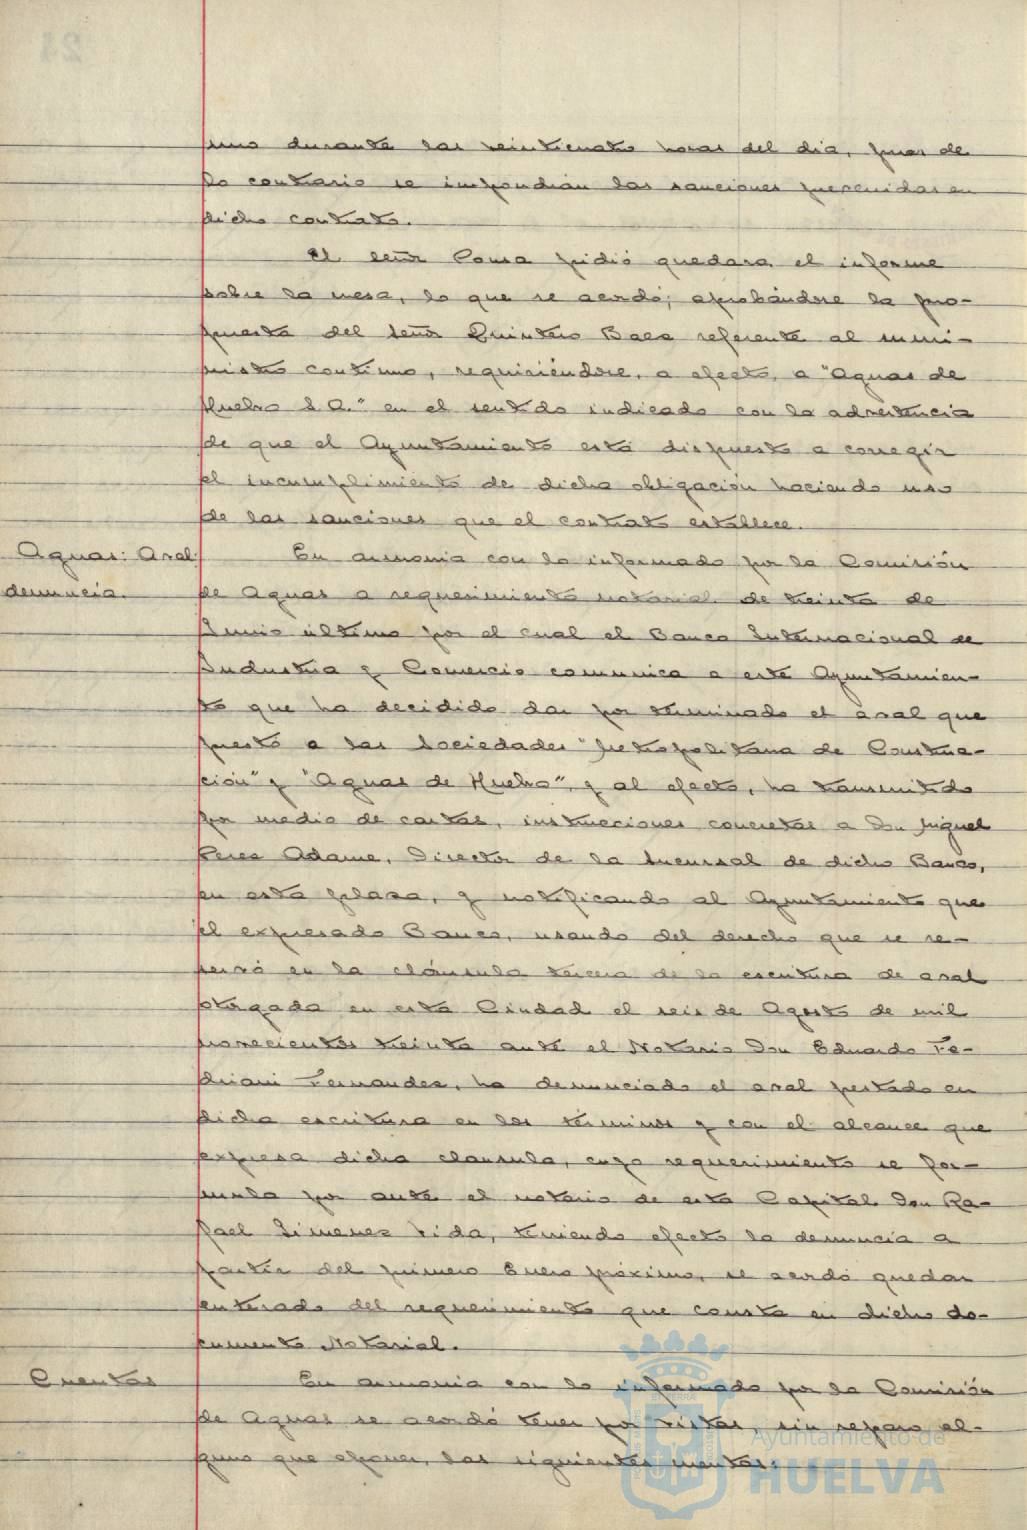 uno durante las veinticuatro horas del dia, pues de
lo contrario se impondrían las sanciones prevenidas en
dicho contrato.
El señor Coma pidió quedara el informe
sobre la mesa, lo que se acordó; aprobándose la pro-
puesta del Señor Quintero Baez referente al sumi-
nistro contínuo, requiriéndose, a efecto, a "Aguas de
Huelva S.A." en el sentido indicado con la advertencia
de que el Ayuntamiento está dispuesto a corregir
el incumplimiento de dicha obligación haciendo uso
de las sanciones que el contrato establece.
Aguas: Aval:
denuncia.
En armonia con lo informado por la Comisión
de Aguas a requerimiento notarial de treinta de
Junio último por el cual el Banco Internacional de
Industria y Comercio comunica a este Ayuntamien-
to que ha decidido dar por terminado el aval que
puesto a las Sociedades "Metropolitana de Construc-
ción" y "Aguas de Huelva", y al efecto, ha transmitido
por medio de cartas, instrucciones concretas a Don Miguel
Perez Adame, Director de la Sucursal de dicho Banco,
en esta plaza, y notificando al Ayuntamiento que
el expresado Banco, usando del derecho que se re-
servó en la cláusula tercera de la escritura de aval
otorgada en esta Ciudad el seis de Agosto de mil
novecientos treinta ante el Notario Don Eduardo Fe-
driani Fernandez, ha denunciado el aval prestado en
dicha escritura en los términos y con el alcance que
expresa dicha clausula, cuyo requerimiento se for-
mula por ante el notario de esta Capital Don Ra-
fael Jimenez Vida, teniendo efecto la denuncia a
partir del primero Enero próximo, se acordó quedar
enterado del requerimiento que consta en dicho do-
cumento Notarial.
Cuentas
En armonia con lo informado por la Comisión
de Aguas se acordó tener por vistas, sin reparo al-
guno que oponer, las siguientes cuentas:
Ayuntamiento de
HUELVA